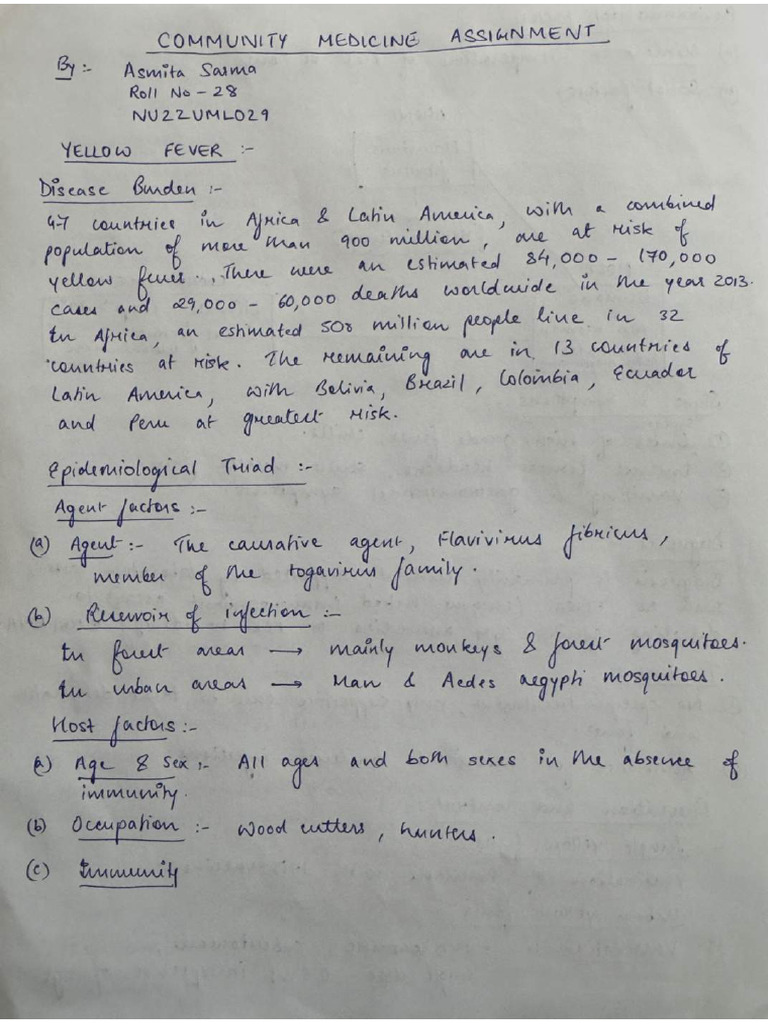 COMMUNITY MEDICINE ASSIGNMENT
By :- Asmita Sarma
Roll No - 28
NU22UML029
YELLOW FEVER :-
Disease Burden :-
47 countries in Africa & Latin America, with a combined
population of more than 900 million, are at risk of
yellow fever. There were an estimated 84,000 - 170,000
cases and 29,000 - 60,000 deaths worldwide in the year 2013.
In Africa, an estimated 508 million people live in 32
countries at risk. The remaining are in 13 countries of
Latin America, with Bolivia, Brazil, Colombia, Ecuador
and Peru at greatest risk.
Epidemiological Triad :-
Agent factors :-
(a) Agent :- The causative agent, Flavivirus fibricus,
member of the togavirus family.
(b) Reservoir of infection :-
In forest areas → mainly monkeys & forest mosquitoes.
In urban areas → Man & Aedes aegypti mosquitoes.
Host factors :-
(a) Age & Sex :- All ages and both sexes in the absence of
immunity.
(b) Occupation :- Wood cutters, hunters.
(c) Immunity